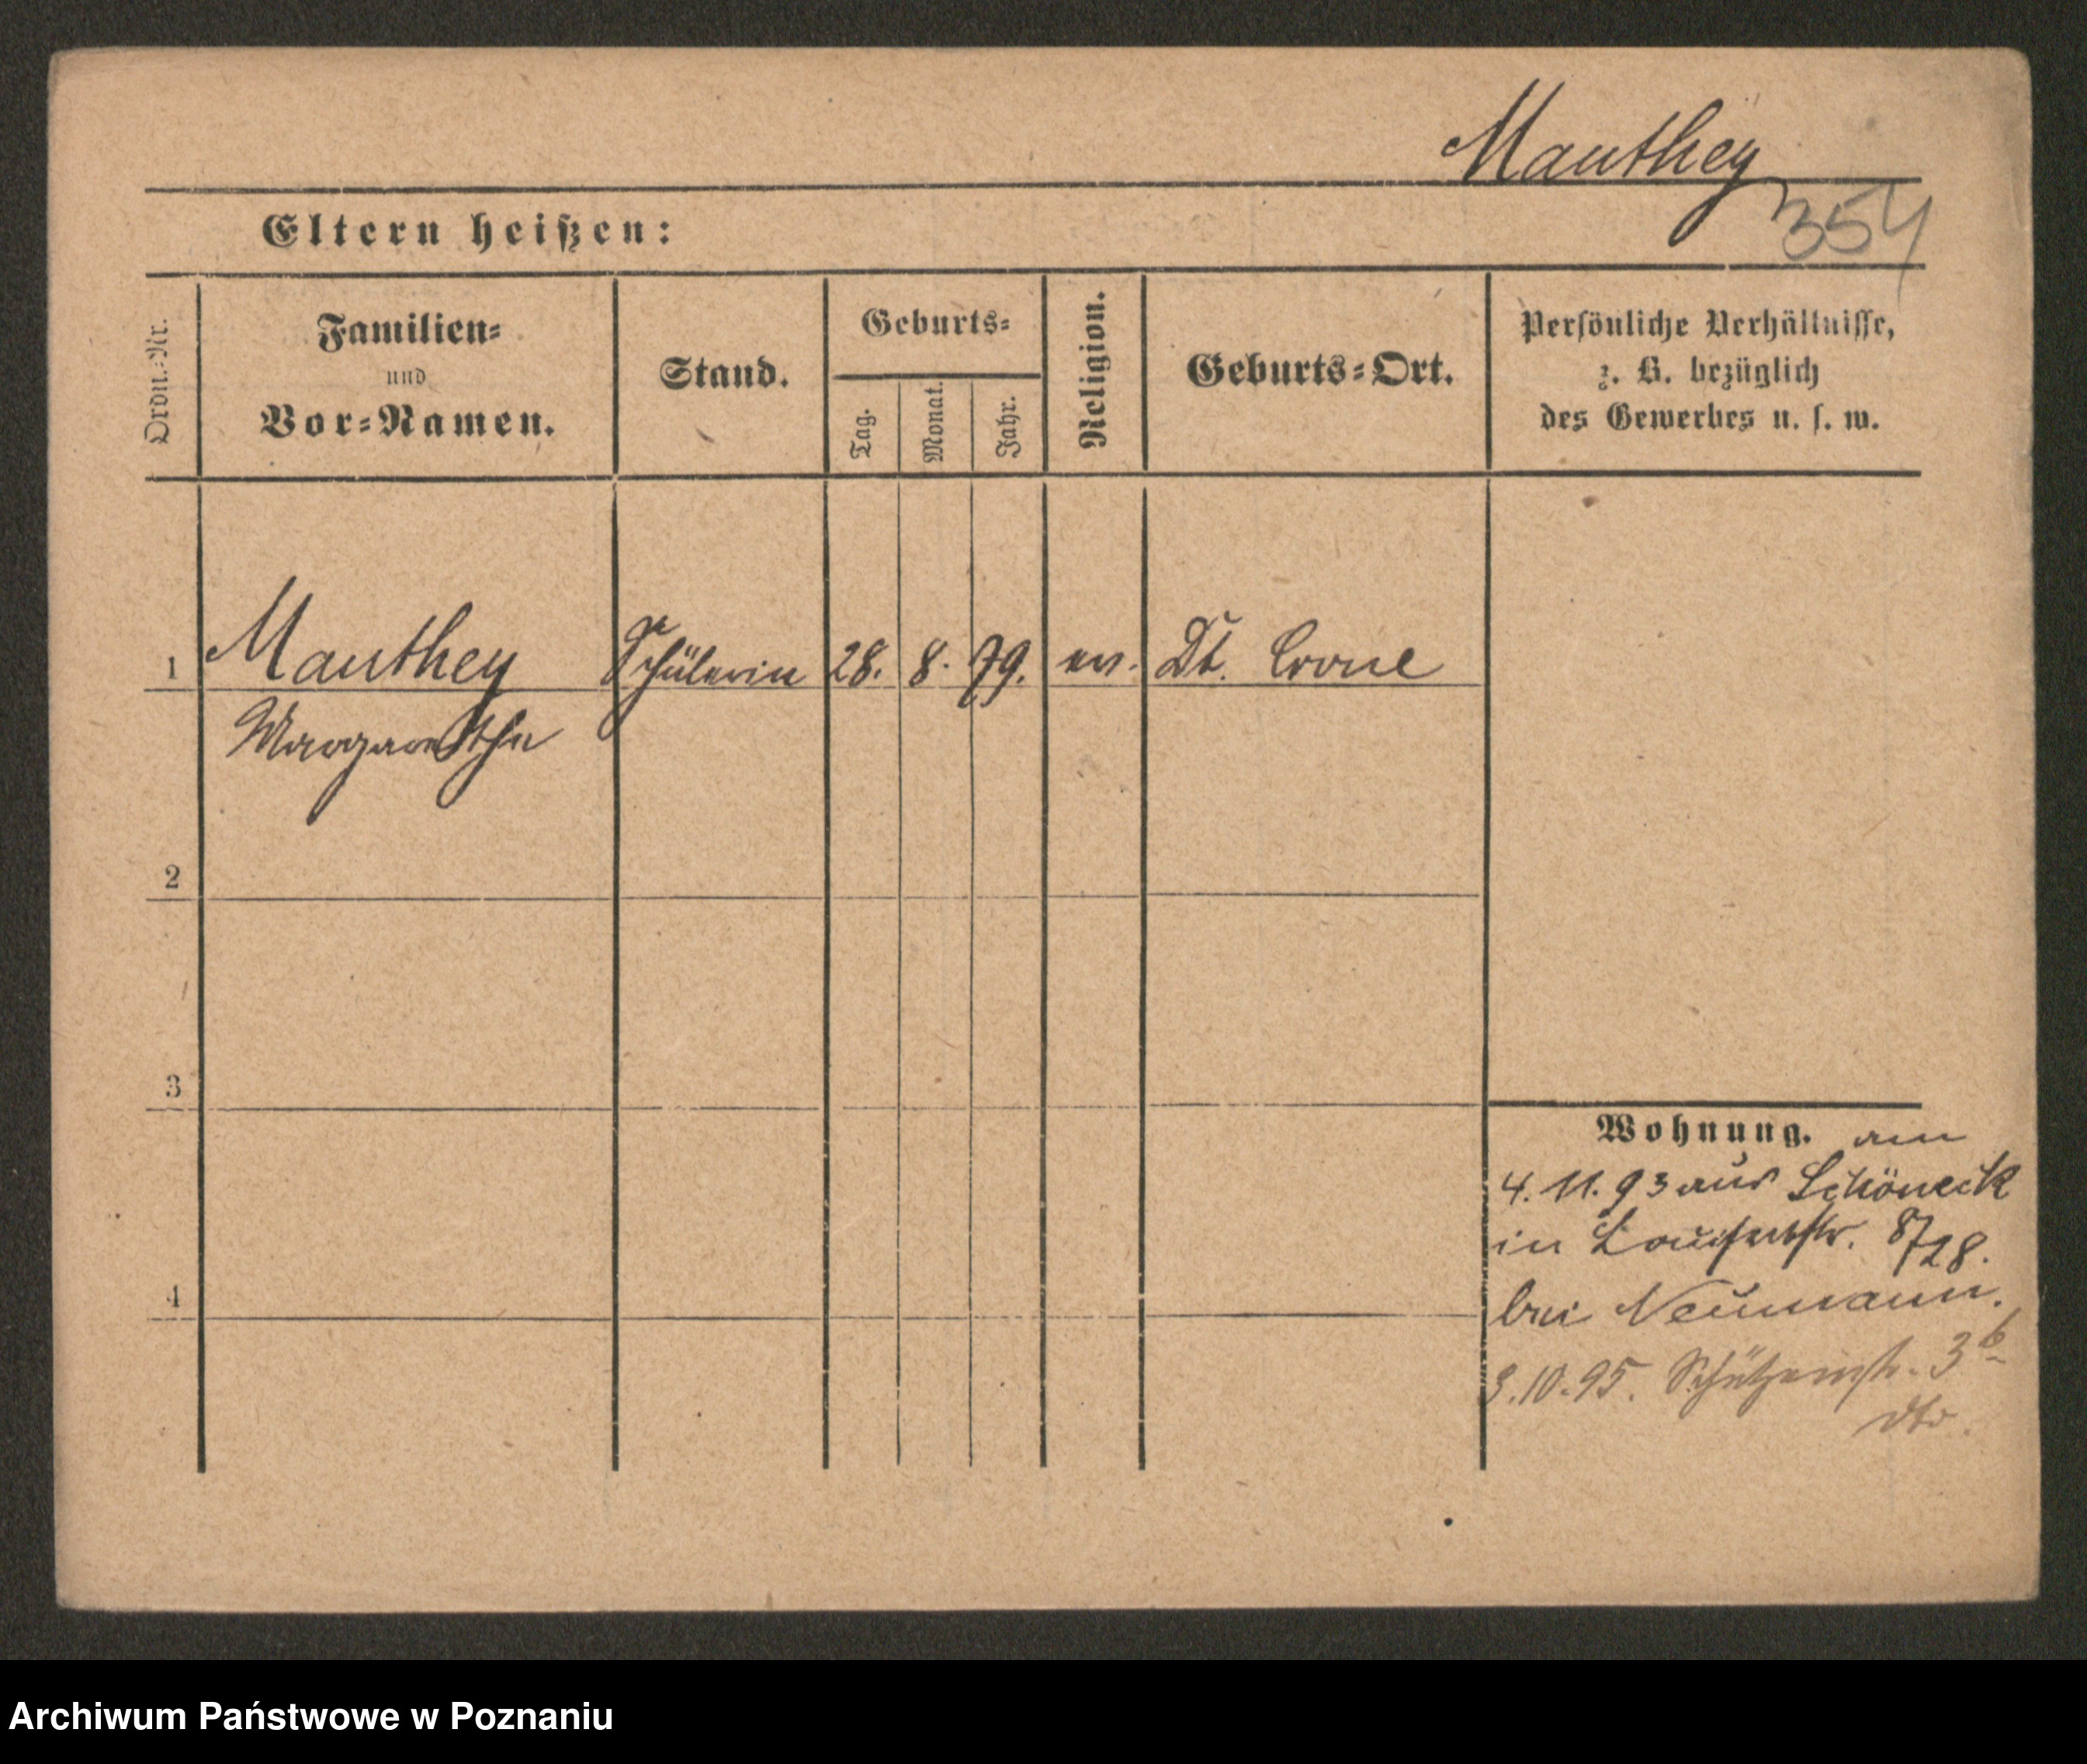 Manthey
354
Eltern heißen:
Ordn.-Nr.
Familien-
und
Vor-Namen.
Stand.
Geburts-
Tag.
Monat.
Jahr.
Religion.
Geburts-Ort.
Persönliche Verhältnisse,
z. B. bezüglich
des Gewerbes u. s. w.
1 Manthey Schülerin 28. 8. 79. ev. Dt. Crone
Margarethe
2
3
Wohnung. am
4. 11. 93 aus Schöneck
in Louisenstr.
4
bei Neumann.
3.10.95. Schützenstr. 3b
dto.
Archiwum Państwowe w Poznaniu